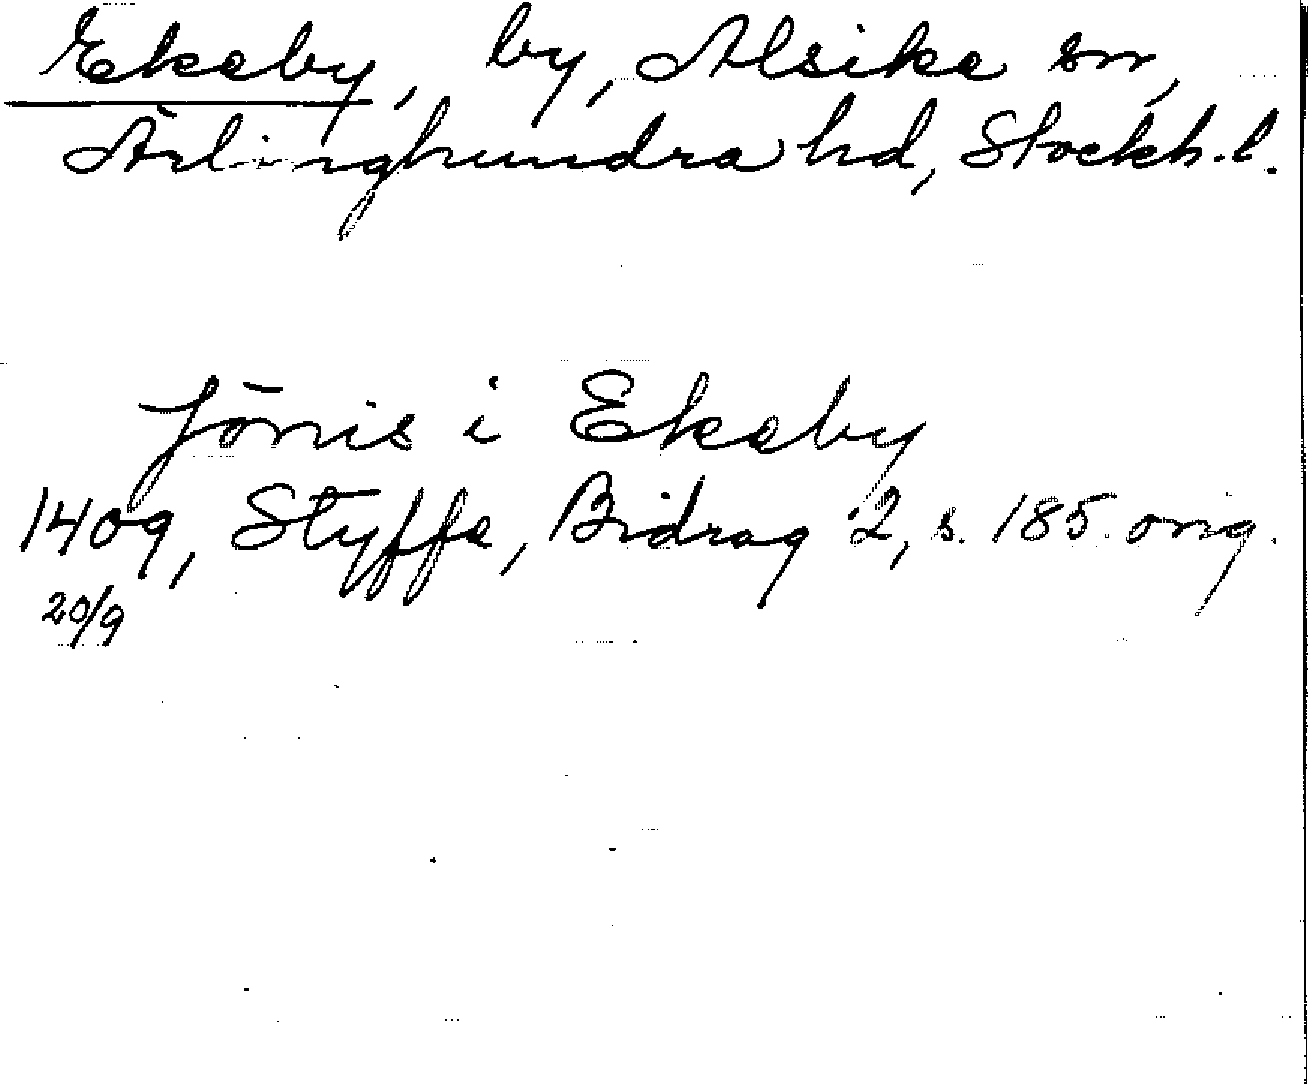 Ekeby, by, Alsike sn,
Ärlinghundra hd, Stockh. l.
Jönis i Ekeby
1409, Styffe, Bidrag 2, s. 185. orig.
20/9